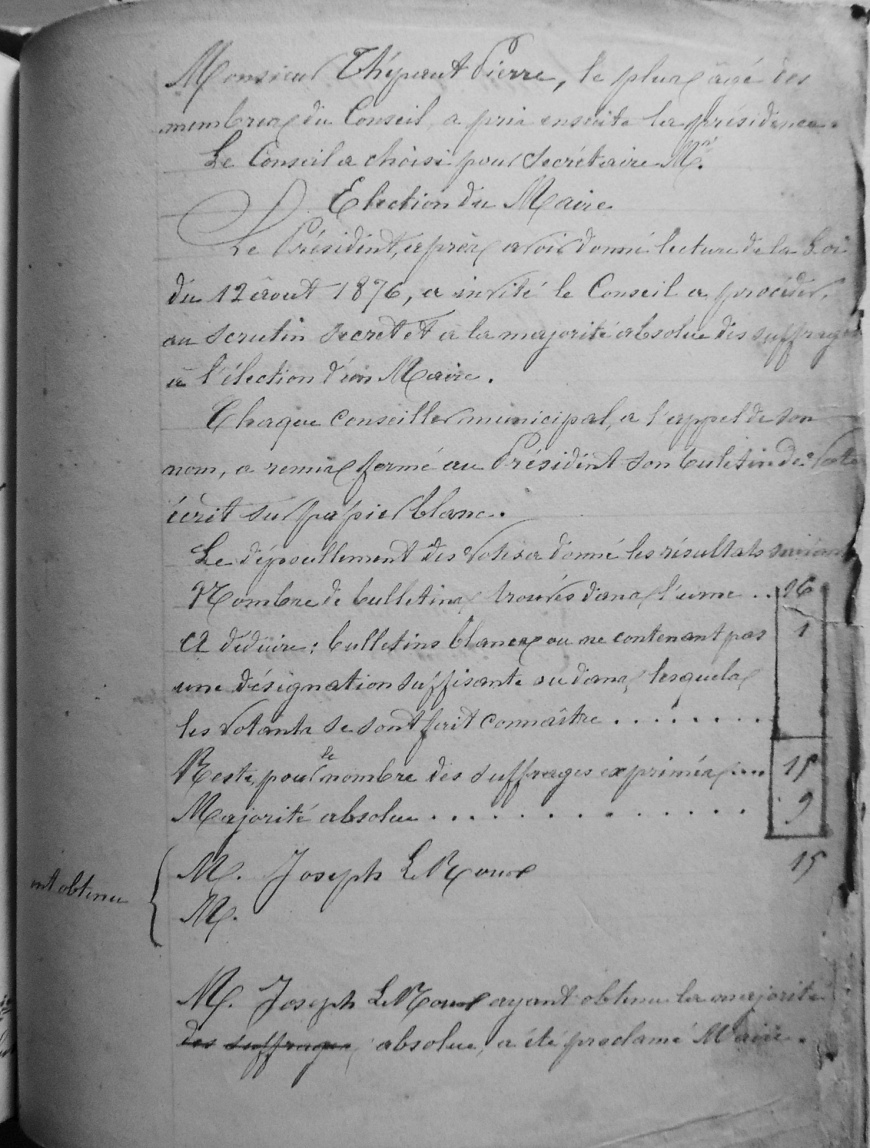 Monsieur Thépaut Pierre, le plus âgé des
membres du Conseil, a pris ensuite la présidence.
Le Conseil a choisi pour Secrétaire Mr.
Election du Maire
Le Président, après avoir donné lecture de la Loi
du 12 août 1876, a invité le Conseil a procéder,
au scrutin secret et a la majorité absolue des suffrages
à l'élection d'un Maire.
Chaque conseiller municipal, a l'appel de son
nom, a remis fermé au Président son buletin de Vote
écrit sur papier blanc.
Le dépouillement des Votes a donné les résultats suivants
Nombre de bulletins trouvés dans l'urne .. 16
A déduire : bulletins blancs ou ne contenant pas 1
une désignation suffisante ou dans lesquels
les Votants se sont fait connaître ........
Reste, pour le nombre des suffrages exprimés .... 15
Majorité absolue .............. 9
ont obtenu
M. Joseph Le Roux 15
M.
M. Joseph Le Roux ayant obtenu la majorité
des suffrages absolue, a été proclamé Maire.